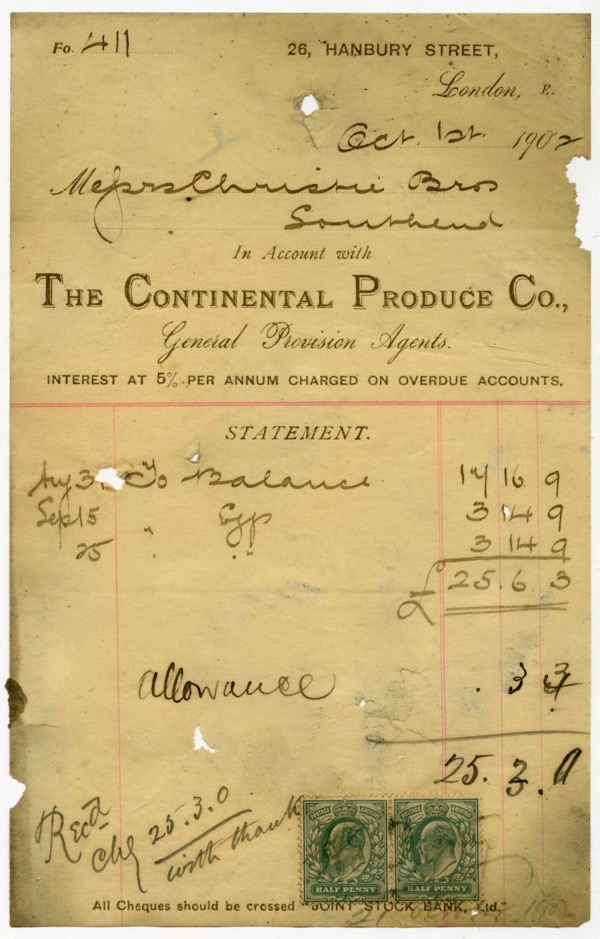 Fo. 411
26, HANBURY STREET,
London, E.
Oct. 1st. 1902
Messrs Christie Bros
Southend
In Account with
THE CONTINENTAL PRODUCE CO.,
General Provision Agents.
INTEREST AT 5% PER ANNUM CHARGED ON OVERDUE ACCOUNTS.
STATEMENT.
Aug 3 To Balance 17 16 9
Sep 15 " Egg 3 14 9
25 " " 3 14 9
£ 25. 6. 3
Allowance . 3 3
25. 3. 0
Recd
Chq 25.3.0
with thanks
HALF PENNY HALF PENNY
All Cheques should be crossed "JOINT STOCK BANK, Ltd."